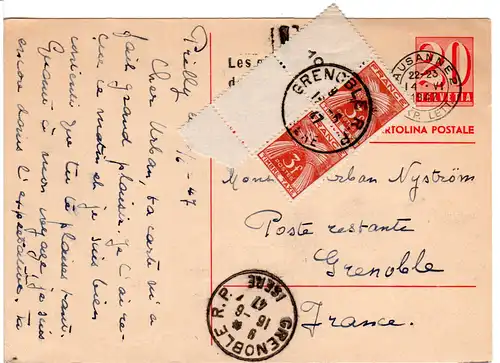 Prilly, 14/6 - 47
Cher Urban, ta carte m'a
fait grand plaisir. Je l'ai re-
çue ce matin et je suis bien
contente que tu te plaises tant.
Quant à mon voyage, je suis
encore dans l'expectative. Ta
Les
LAUSANNE 2
22-23
14 VI
(EXP. LETT)
20
HELVETIA
CARTOLINA POSTALE
GRENOBLE R.P.
16-6
47
ISERE
FRANCE
3F
POSTES
CHIFFRE-TAXE
FRANCE
3F
Monsieur Urban Nyström
Poste restante
Grenoble
France.
GRENOBLE R.P.
9 H
16-6
47
ISERE